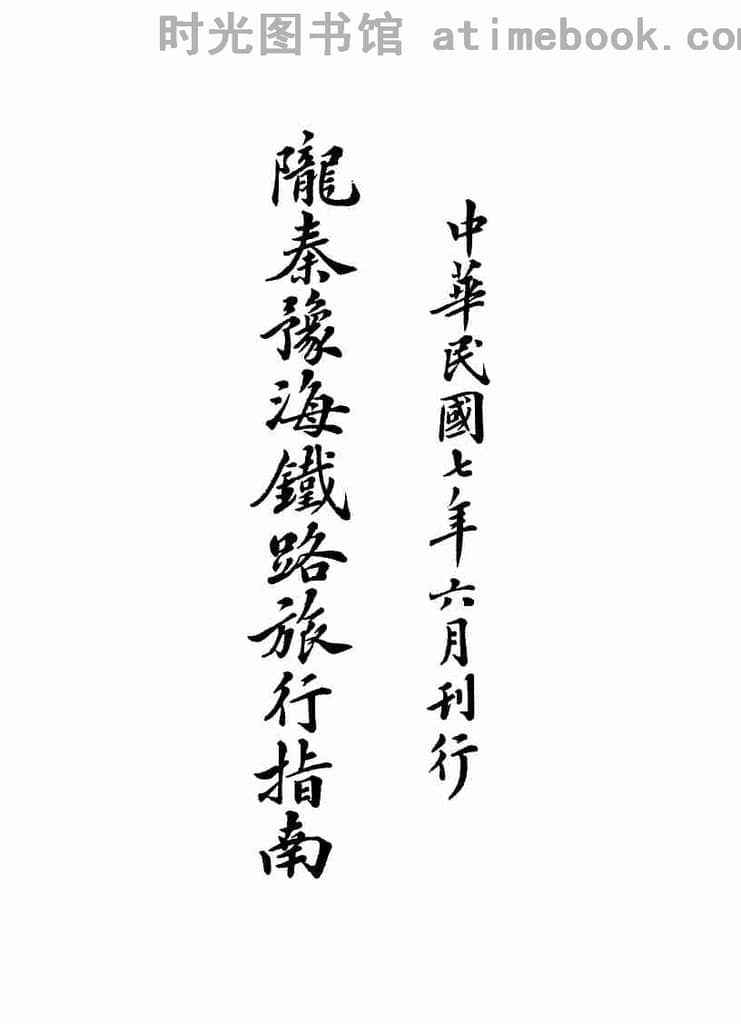 时光图书馆 atimebook.com
中華民國七年六月刊行
隴秦豫海鐵路旅行指南